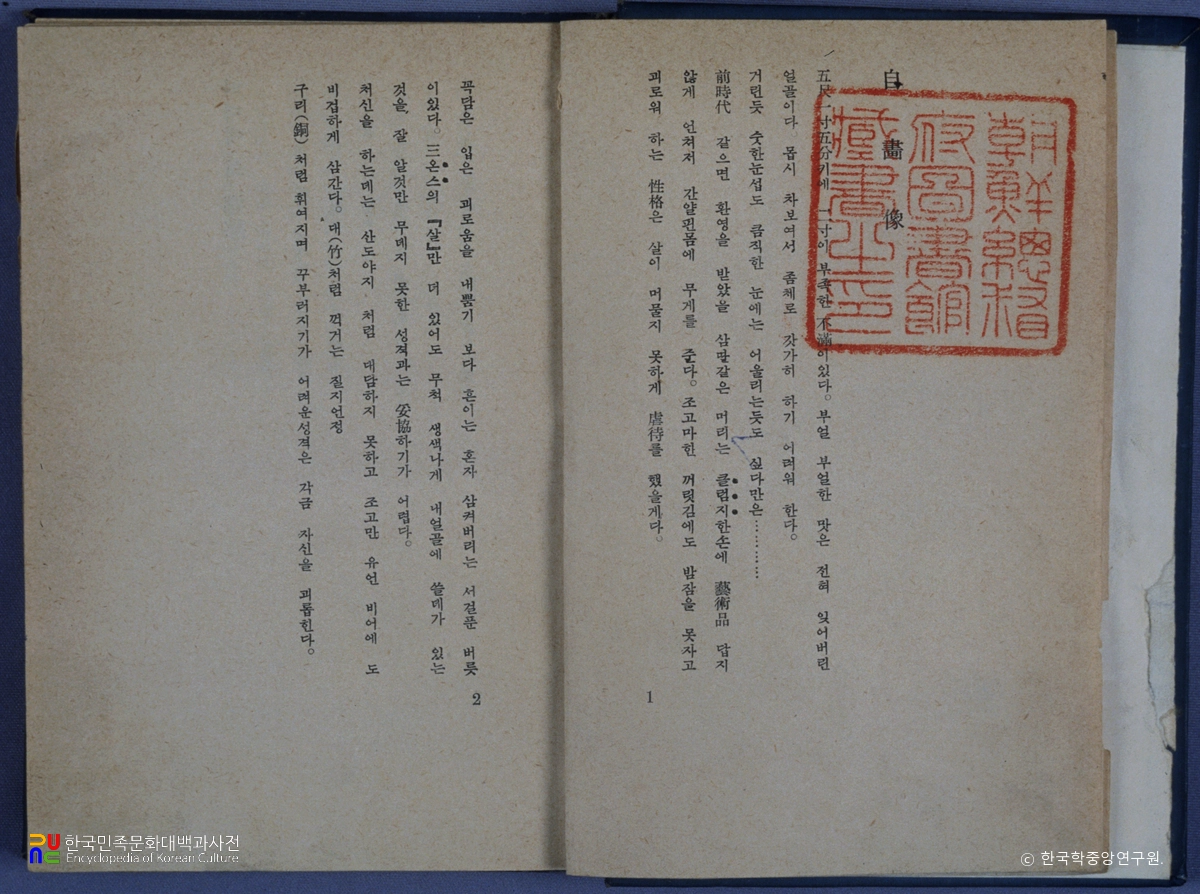 自畵像
五尺一寸五分키에 二寸이 부족한 不滿이있다。 부얼 부얼한 맛은 전혀 잊어버린
얼골이다 몹시 차보여서 좀체로 갓가히 하기 어려워 한다。
거린듯 숫한눈섭도 큼직한 눈에는 어울리는듯도 싶다만은…………
前時代 같으면 환영을 받았을 삼딴같은 머리는 클럼지한손에 藝術品 답지
않게 언쳐저 간얄핀몸에 무게를 준다。 조고마한 꺼릿김에도 밤잠을 못자고
괴로워 하는 性格은 살이 머물지 못하게 虐待를 했을게다。
1
꼭담은 입은 괴로움을 내뿜기 보다 흔이는 혼자 삼켜버리는 서걸푼 버릇
이있다。 三온스의 『살』만 더 있어도 무척 생색나게 내얼골에 쓸데가 있는
것을 잘 알것만 무데지 못한 성격과는 妥協하기가 어렵다。
처신을 하는데는 산도야지 처럼 대담하지 못하고 조고만 유언 비어에 도
비겁하게 삼간다。 대(竹)처럼 꺽거는 질지언정
구리(銅)처럼 휘여지며 꾸부러지기가 어려운성격은 각금 자신을 괴롭힌다。
2
朝鮮總督
府圖書館
藏書之印
한국민족문화대백과사전
Encyclopedia of Korean Culture
© 한국학중앙연구원.